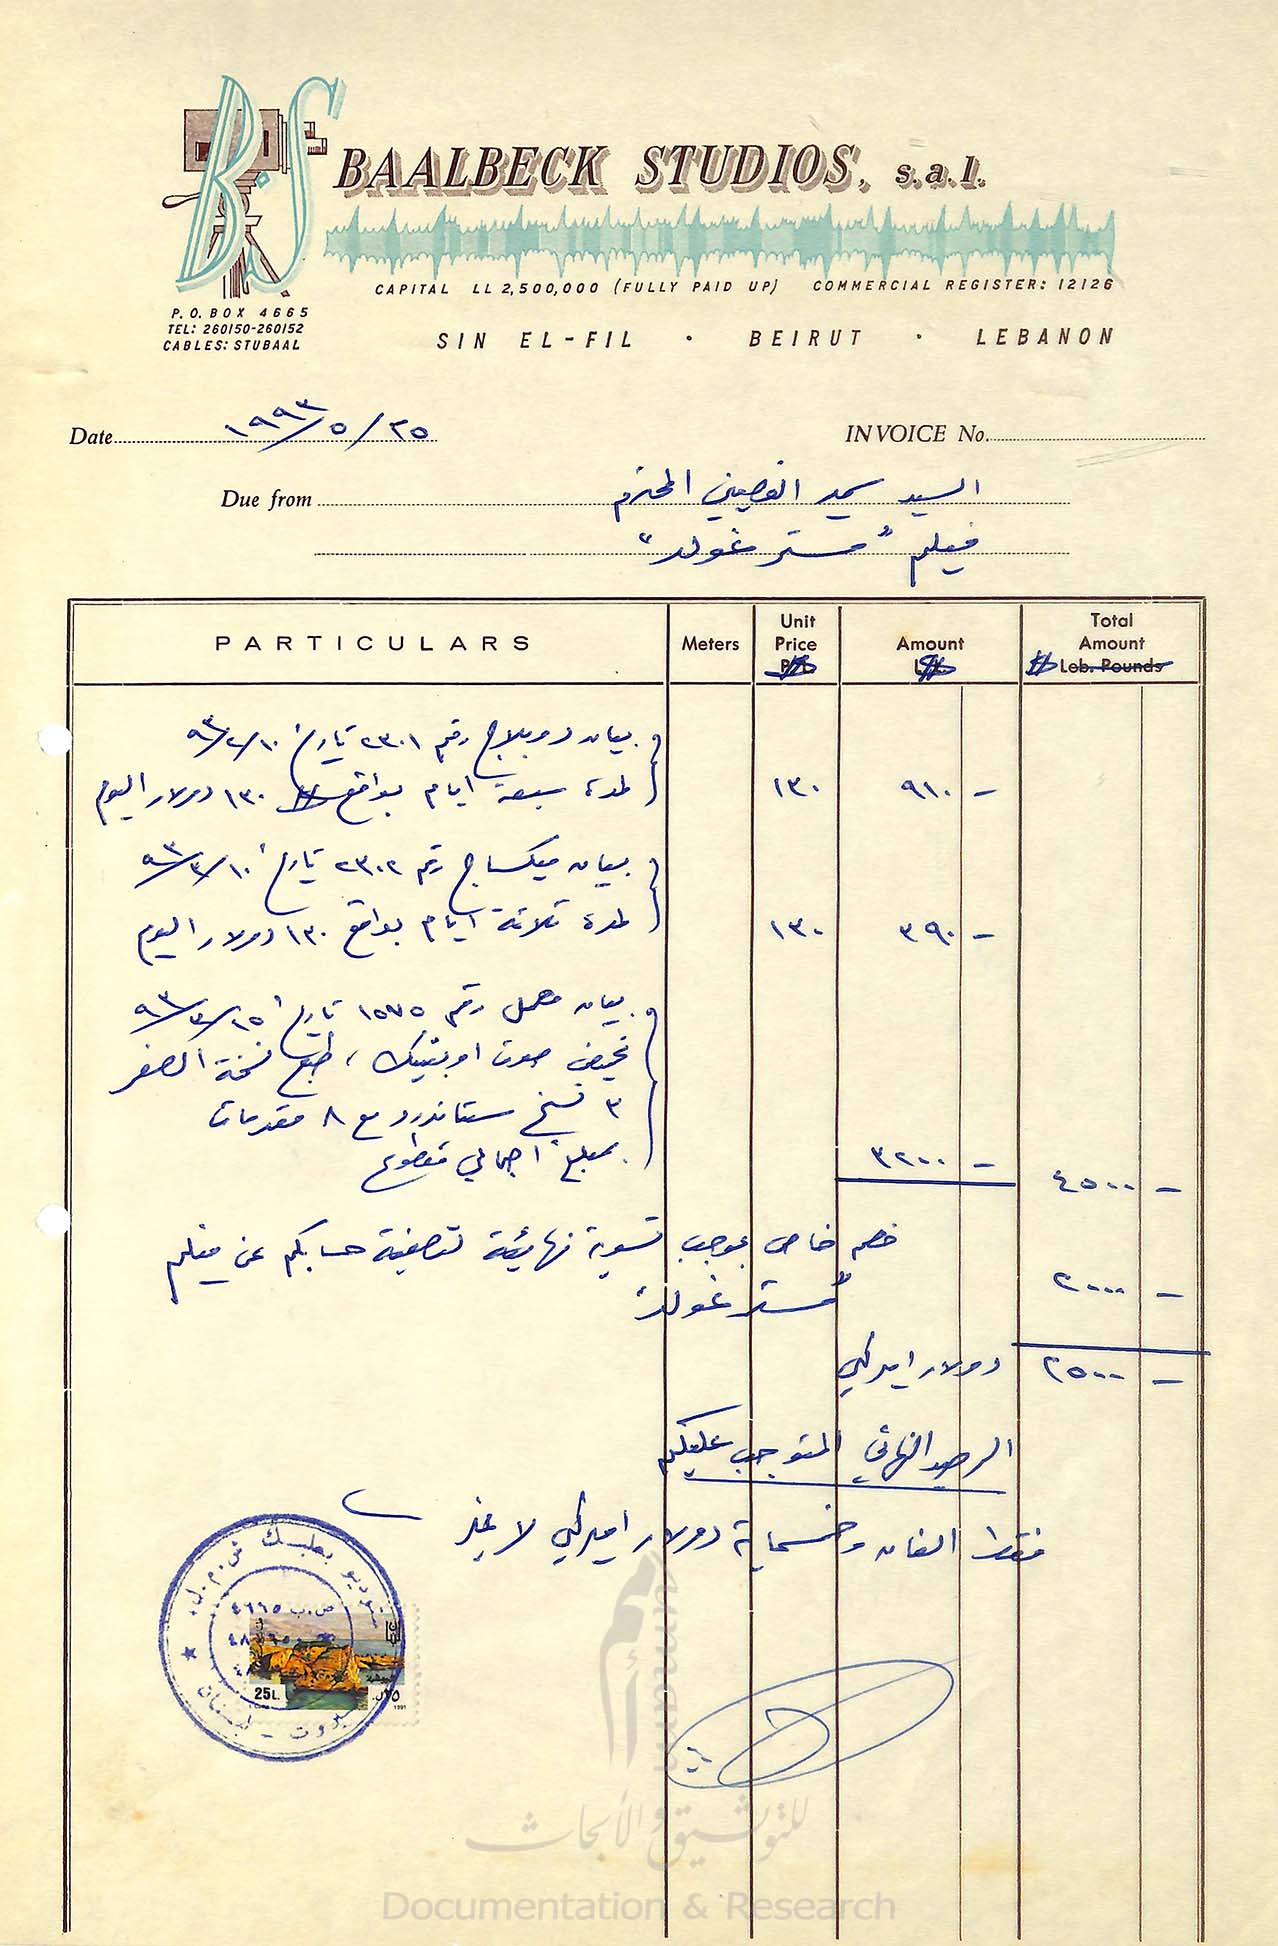 BS
BAALBECK STUDIOS, s.a.l.
CAPITAL LL 2,500,000 (FULLY PAID UP) COMMERCIAL REGISTER: 12126
P.O. BOX 4665
TEL: 260150-260152
CABLES: STUBAAL
SIN EL-FIL · BEIRUT · LEBANON
Date ٢٥/٥/١٩٩٣
INVOICE No.
Due from السيد سمير الغصيني المحترم
فيلم "مستر غولد"
PARTICULARS Meters Unit Price $ Amount $ Total Amount $ Leb. Pounds
بيان دوبلاج رقم ٢٣٠١ تاريخ ٩٣/٢/١٠
لمدة سبعة ايام بواقع ١٣٠ دولار اليوم ١٣٠ ٩١٠ -
بيان ميكساج رقم ٢٣٠٢ تاريخ ٩٣/٣/١٠
لمدة ثلاثة ايام بواقع ١٣٠ دولار اليوم ١٣٠ ٣٩٠ -
بيان معمل رقم ١٥٧٥ تاريخ ٩٣/٣/١٥
تحميض صوت اوبتيك، طبع نسخة الصفر
٣ نسخ ستاندرد مع ٨ مقدمات
بمبلغ اجمالي مقطوع ٣٢٠٠ - ٤٥٠٠ -
خصم خاص بموجب تسوية نهائية لتصفية حسابكم عن فيلم
"مستر غولد" ٢٠٠٠ -
دولار اميركي ٢٥٠٠ -
الرصيد النهائي المتوجب عليكم
فقط الفان وخمسماية دولار اميركي لا غير
ستوديو بعلبك ش.م.ل.
ص.ب ٤٦٦٥
بيروت - لبنان
25L.
٢٥ل.
1991
أمم
umam
للتوثيق والأبحاث
Documentation & Research